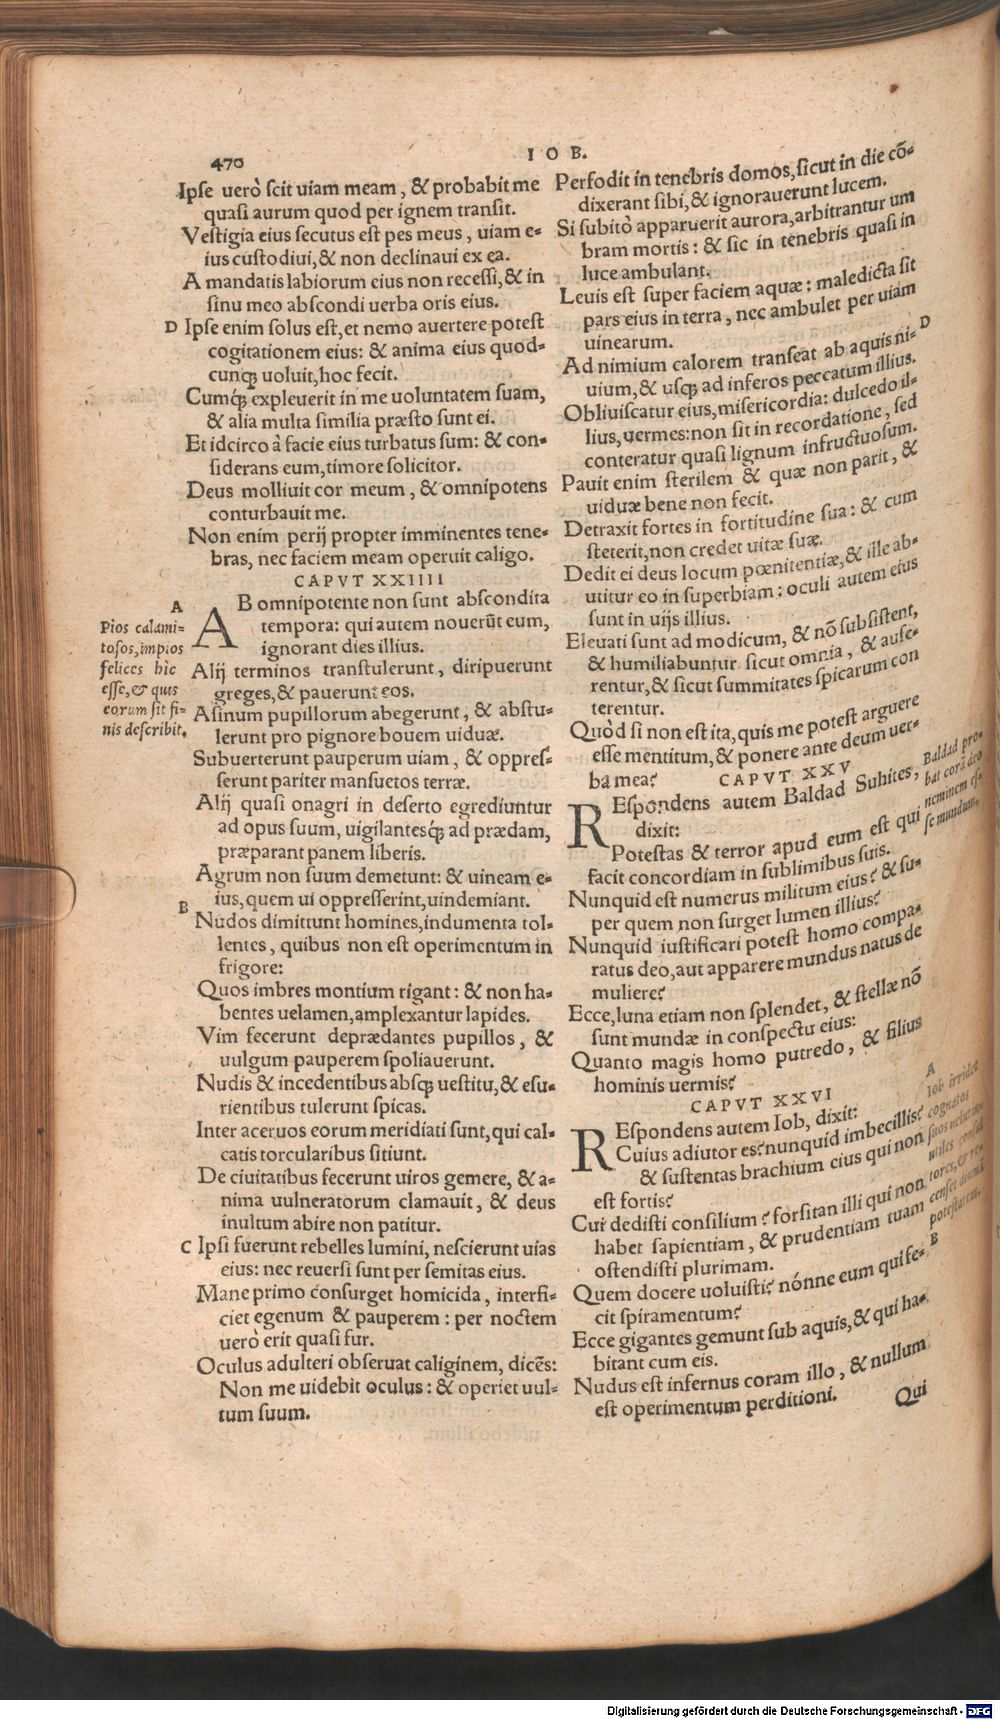 470
I O B.
Ipse uerò scit uiam meam, & probabit me
quasi aurum quod per ignem transit.
Vestigia eius secutus est pes meus, uiam e-
ius custodiui, & non declinaui ex ea.
A mandatis labiorum eius non recessi, & in
sinu meo abscondi uerba oris eius.
D Ipse enim solus est, et nemo auertere potest
cogitationem eius: & anima eius quod-
cunq; uoluit, hoc fecit.
Cumq́; expleuerit in me uoluntatem suam,
& alia multa similia præsto sunt ei.
Et idcirco à facie eius turbatus sum: & con-
siderans eum, timore solicitor.
Deus molliuit cor meum, & omnipotens
conturbauit me.
Non enim perij propter imminentes tene-
bras, nec faciem meam operuit caligo.
CAPVT XXIIII
A
Pios calami-
tosos, impios
felices hic
esse, & quis
eorum sit fi-
nis describit.
AB omnipotente non sunt abscondita
tempora: qui autem nouerũt eum,
ignorant dies illius.
Alij terminos transtulerunt, diripuerunt
greges, & pauerunt eos.
Asinum pupillorum abegerunt, & abstu-
lerunt pro pignore bouem uiduæ.
Subuerterunt pauperum uiam, & oppres-
serunt pariter mansuetos terræ.
Alij quasi onagri in deserto egrediuntur
ad opus suum, uigilantesq́; ad prædam,
præparant panem liberis.
Agrum non suum demetunt: & uineam e-
ius, quem ui oppresserint, uindemiant.
B
Nudos dimittunt homines, indumenta tol-
lentes, quibus non est operimentum in
frigore:
Quos imbres montium rigant: & non ha-
bentes uelamen, amplexantur lapides.
Vim fecerunt deprædantes pupillos, &
uulgum pauperem spoliauerunt.
Nudis & incedentibus absq; uestitu, & esu-
rientibus tulerunt spicas.
Inter aceruos eorum meridiati sunt, qui cal-
catis torcularibus sitiunt.
De ciuitatibus fecerunt uiros gemere, & a-
nima uulneratorum clamauit, & deus
inultum abire non patitur.
C Ipsi fuerunt rebelles lumini, nescierunt uias
eius: nec reuersi sunt per semitas eius.
Mane primo consurget homicida, interfi-
ciet egenum & pauperem: per noctem
uerò erit quasi fur.
Oculus adulteri obseruat caliginem, dicẽs:
Non me uidebit oculus: & operiet uul-
tum suum.
Perfodit in tenebris domos, sicut in die cõ-
dixerant sibi, & ignorauerunt lucem.
Si subitò apparuerit aurora, arbitrantur um
bram mortis: & sic in tenebris quasi in
luce ambulant.
Leuis est super faciem aquæ: maledicta sit
pars eius in terra, nec ambulet per uiam
uinearum.
D
Ad nimium calorem transeat ab aquis ni-
uium, & usq; ad inferos peccatum illius.
Obliuiscatur eius, misericordia: dulcedo il-
lius, uermes: non sit in recordatione, sed
conteratur quasi lignum infructuosum.
Pauit enim sterilem & quæ non parit, &
uiduæ bene non fecit.
Detraxit fortes in fortitudine sua: & cum
steterit, non credet uitæ suæ.
Dedit ei deus locum pœnitentiæ, & ille ab-
utitur eo in superbiam: oculi autem eius
sunt in uijs illius.
Eleuati sunt ad modicum, & nõ subsistent,
& humiliabuntur sicut omnia, & aufe-
rentur, & sicut summitates spicarum con
terentur.
Quòd si non est ita, quis me potest arguere
esse mentitum, & ponere ante deum uer-
ba mea?
CAPVT XXV
Baldad pro-
bat corã deo
neminem es-
se mundum.
REspondens autem Baldad Suhites,
dixit:
Potestas & terror apud eum est qui
facit concordiam in sublimibus suis.
Nunquid est numerus militum eius? & su-
per quem non surget lumen illius?
Nunquid iustificari potest homo compa-
ratus deo, aut apparere mundus natus de
muliere?
Ecce, luna etiam non splendet, & stellæ nõ
sunt mundæ in conspectu eius:
Quanto magis homo putredo, & filius
hominis uermis?
CAPVT XXVI
A
Iob irridet
cognatos
suos
utiles
tores, &
potestatem.
REspondens autem Iob, dixit:
Cuius adiutor es? nunquid imbecillis?
& sustentas brachium eius qui non
est fortis?
Cui dedisti consilium? forsitan illi qui non
habet sapientiam, & prudentiam tuam
ostendisti plurimam.
B
Quem docere uoluisti? nónne eum qui fe-
cit spiramentum?
Ecce gigantes gemunt sub aquis, & qui ha-
bitant cum eis.
Nudus est infernus coram illo, & nullum
est operimentum perditioni.
Qui
Digitalisierung gefördert durch die Deutsche Forschungsgemeinschaft - DFG